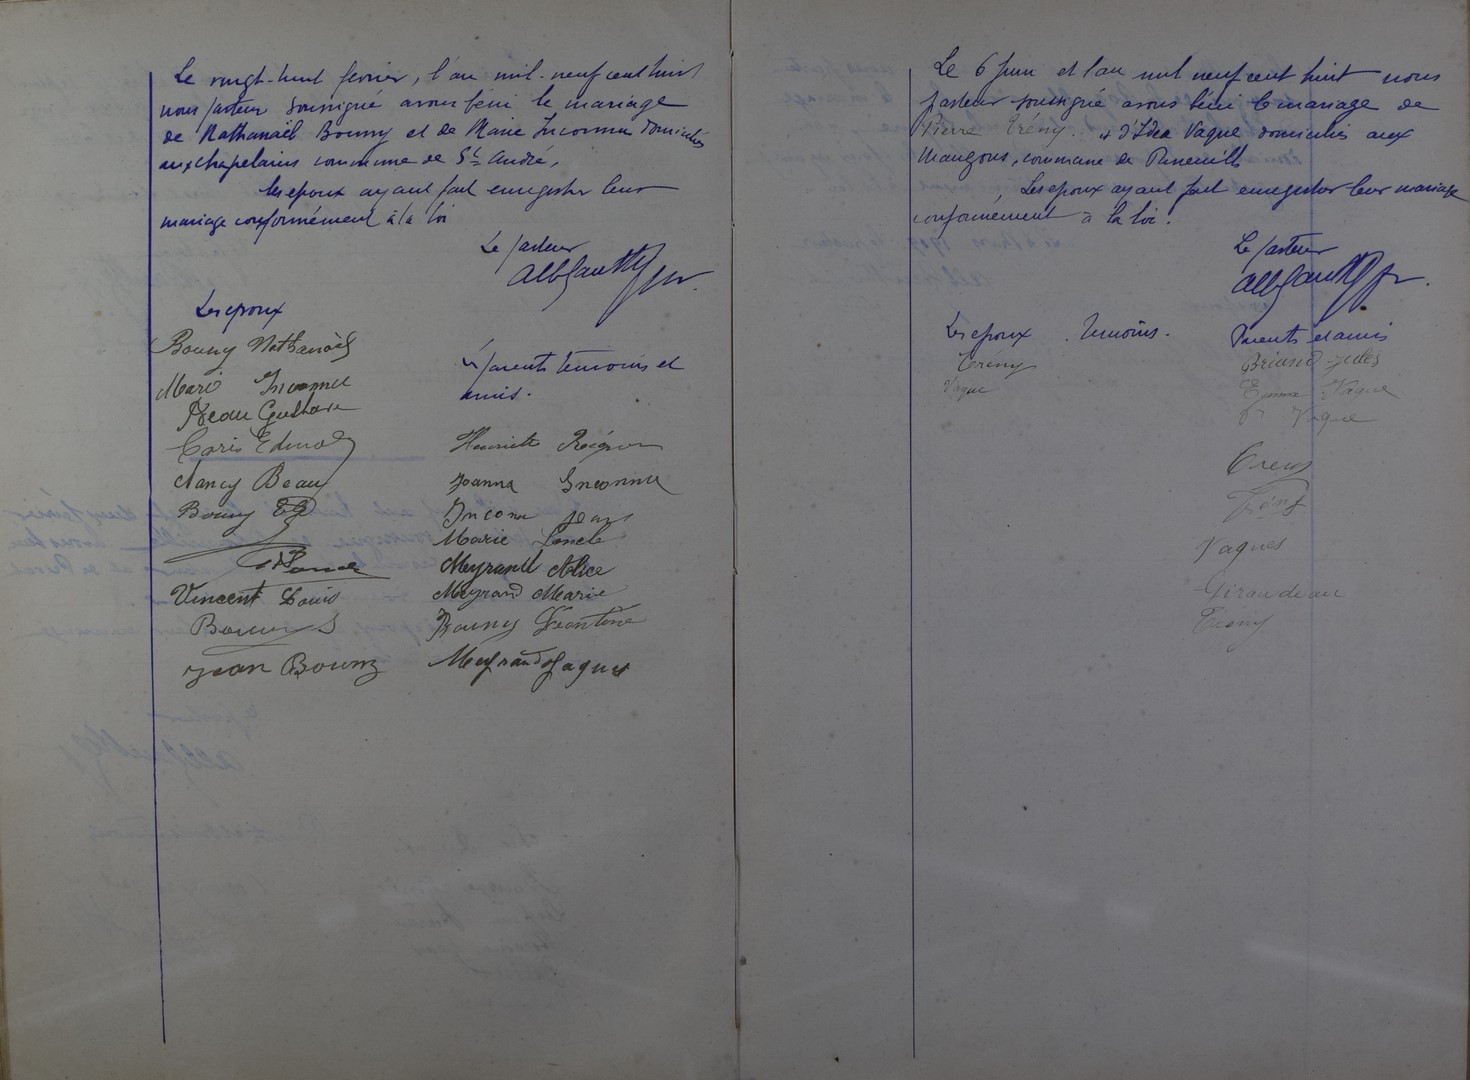 Le vingt-huit février, l'an mil-neuf cent huit
nous pasteur soussigné avons béni le mariage
de Nathanaël Bouny et de Marie Inconnu domiciliés
aux chapelains commune de St André,
les epoux ayant fait enregistrer leur
mariage conformément à la loi
Le pasteur
Les epoux
Bouny Nathanaël
Marie Inconnu
Gustave
Edmond
Nancy Beau
Bouny
Vincent Louis
Jean Bouny
parents témoins et
amis.
Henriette
Joanna Inconnu
Inconnu Jean
Marie
Meyrand Alice
Meyrand Marie
Bouny Léontine
Meyrand Jaques
Le 6 Juin et l'an mil neuf cent huit nous
pasteur soussigné avons béni le mariage de
Pierre Trény et d'Idea Vaque domiciliés aux
commune de Pineuilh
Les epoux ayant fait enregistrer leur mariage
conformément à la loi.
Le pasteur
Les epoux témoins. Parents et amis
Trény
Vaque
Briand
Emma Vaque
Vaque
Trény
Vaques
Giraudeau
Trény